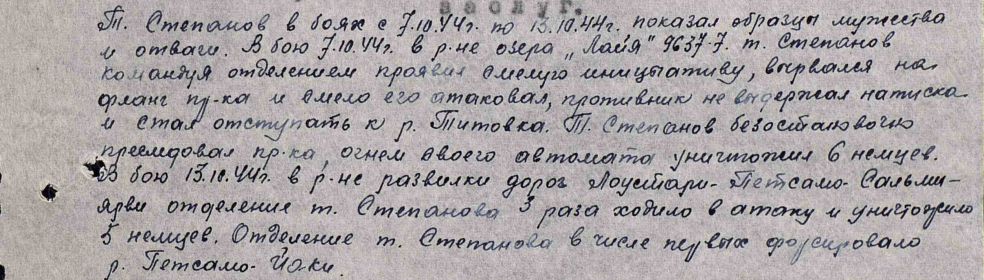 заслуг.
Т. Степанов в боях с 7.10.44г. по 13.10.44г., показал образцы мужества
и отваги. В бою 7.10.44г. в р-не озера „Лайя" 9637-7. т. Степанов
командуя отделением проявил смелую инициативу, вырвался на
фланг пр-ка и смело его атаковал, противник не выдержал натиска
и стал отступать к р. Титовка. Т. Степанов безостановочно
преследовал пр-ка, огнем своего автомата уничтожил 6 немцев.
В бою 13.10.44г. в р-не развилки дорог Лоустари-Петсамо-Сальми-
ярви отделение т. Степанова 3 раза ходило в атаку и уничтожило
5 немцев. Отделение т. Степанова в числе первых форсировало
р. Петсамо-Йоки.